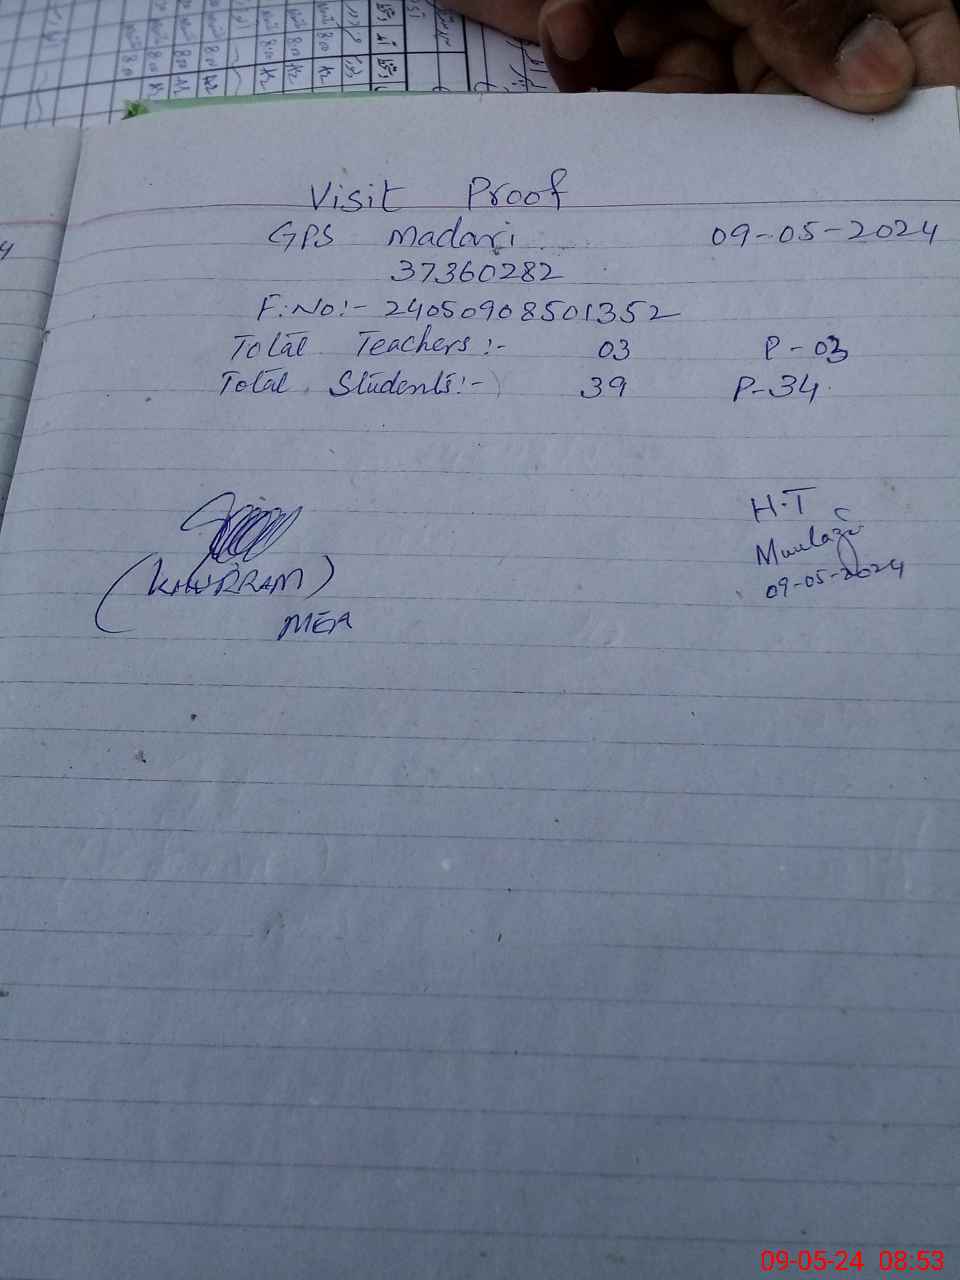 Visit Proof
GPS Madari 09-05-2024
37360282
F.No:- 24050908501352
Total Teachers:- 03 P-03
Total Students:- 39 P-34
H.T
(KHURRAM)
09-05-2024
MEA
09-05-24 08:53